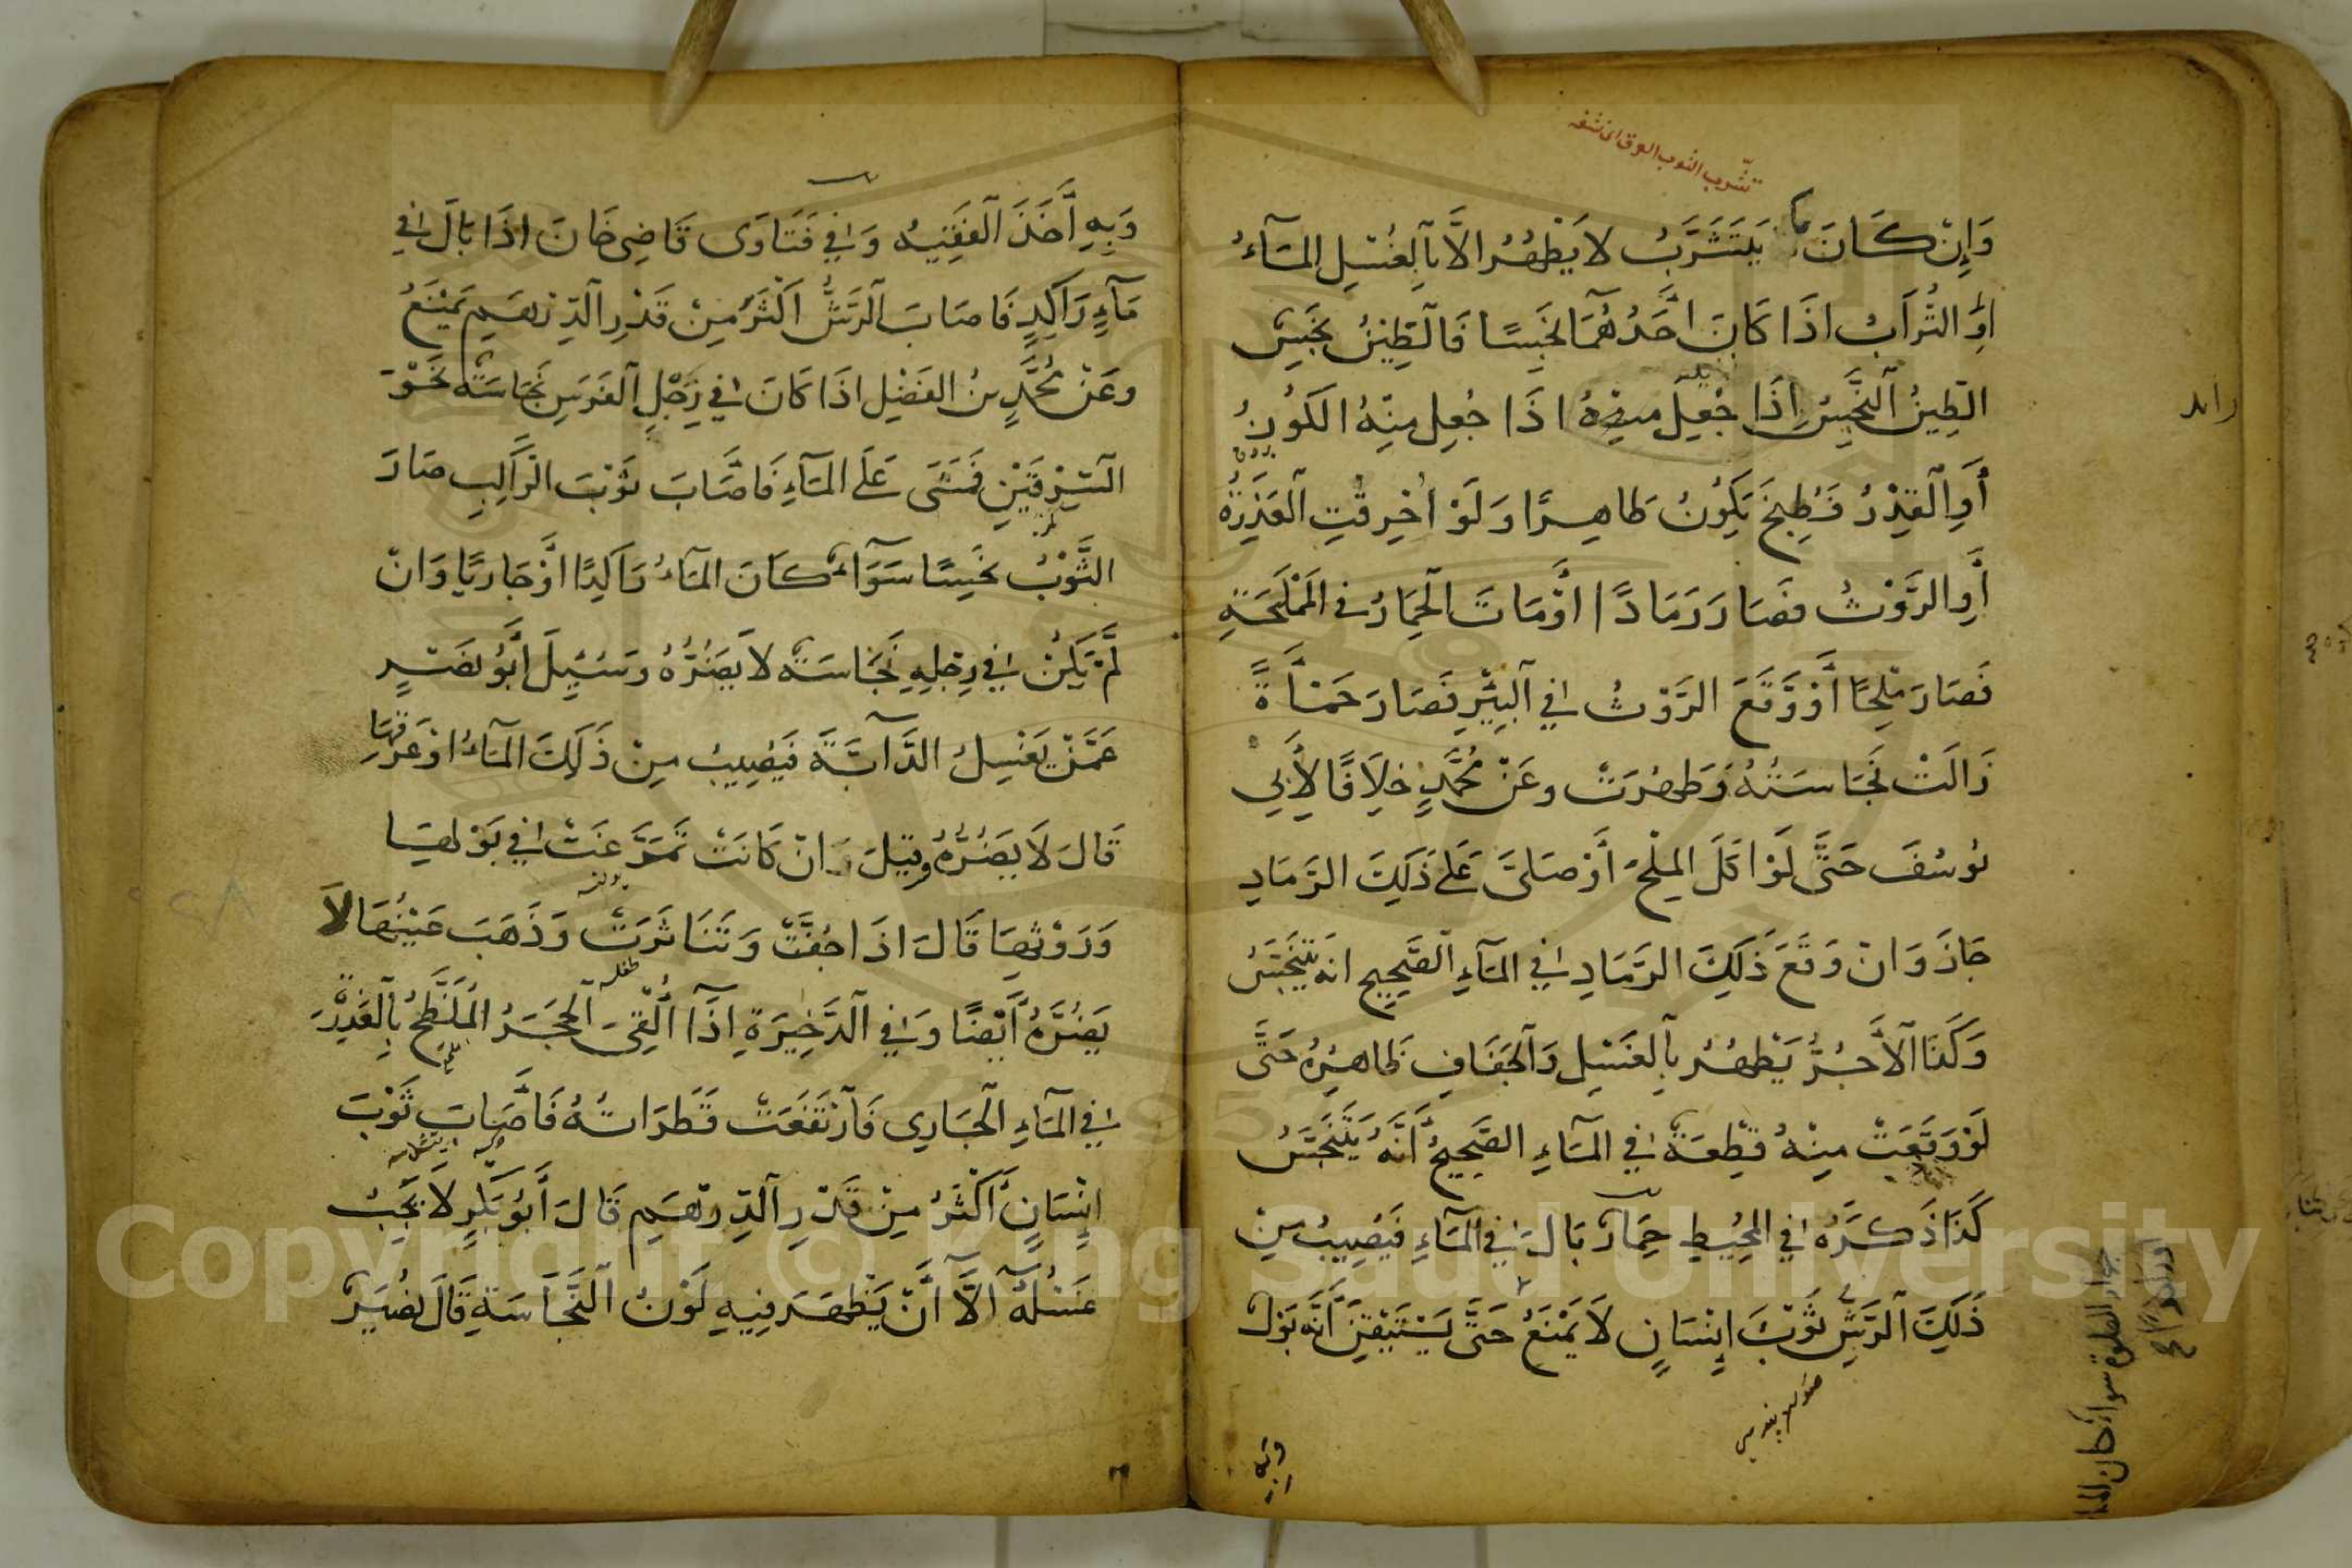 تشرب الثوب العرق اى نشفه
وَاِنْ كَانَ مَا يَتَشَرَّبُ لا يَطْهُرُ الاَّ بِالغُسْلِ المَآءُ
اوِ التُّرَابُ اذَا كَانَ اَحَدُهُمَا نَجِسًا فَالطِّينُ نَجِسٌ
الطِّينُ النَّجِسُ اِذَا جُعِلَ مِنْهُ اذَا جُعِلَ مِنْهُ الكُوزُ
أَوِ الْقِدْرُ فَطُبِخَ يَكُونُ طَاهِرًا وَلَوْ اُحْرِقَتِ الْعَذِرَةُ
أَوِ الرَّوْثُ فَصَارَ رَمَادًا اَوْ مَاتَ الْحِمَارُ فى الْمَمْلَحَةِ
فَصَارَ مِلْحًا أَوْ وَقَعَ الرَّوْثُ فِي الْبِئْرِ فَصَارَ حَمْأَةً
زَالَتْ نَجَاسَتُهُ وَطَهُرَتْ وعَنْ مُحَمَّدٍ خِلَافًا لِأَبِي
يُوسُفَ حَتَّى لَوْ اَكَلَ المِلْحَ أَوْ صَلَّى عَلَى ذَلِكَ الرَّمَادِ
جَازَ وَانْ وَقَعَ ذَلِكَ الرَّمَادِ فِي المَآءِ الصَّحِيحِ انه يَتَنَجَّسُ
وَكَذَا الْآجُرُّ يَطْهُرُ بِالغَسْلِ وَالْجَفَافِ ظَاهِرُهُ حَتَّى
لَوْ وَقَعَتْ مِنْهُ قِطْعَةٌ فِي المَآءِ الصَّحِيحُ أَنَّهُ يَتَنَجَّسُ
كَذَا ذَكَرَهُ فِي الْمُحِيطِ حِمَارٌ بَالَ فِي الْمَآءِ فَيُصِيبُ مِنْ
ذَلِكَ الرَّشِّ ثَوْبَ اِنْسَانٍ لَا يَمْنَعُ حَتَّى يَسْتَيْقِنَ أَنَّهُ بَوْلٌ
وَبِهِ
جواز الصلوة سواء كان الماء
وَبِهِ أَخَذَ الْفَقِيهُ وَفِي فَتَاوَى قَاضِى خَانَ اذَا بَالَ فِي
مَآءٍ رَاكِدٍ فَاصَابَ الرَّشُّ اَكْثَرُ مِنْ قَدْرِ الدِّرْهَمِ يَمْنَعُ
وعَنْ مُحَمَّدٍ بنُ الفَضْلِ اذَا كَانَ فِي رِجْلِ الفَرَسِ نَجَاسَةٌ نَحْوَ
السِّرْقِينِ فَمَشَى عَلَى المَآءِ فَاصَابَ ثَوْبَ الرَّاكِبِ صَارَ
الثَّوْبُ نَجِسًا سَوَآءٌ كَانَ المَآءُ رَاكِدًا اَوْ جَارِيًا وَانْ
لَمْ يَكُنْ فِي رِجْلِهِ نَجَاسَةٌ لا يَضُرُّهُ وسُئِلَ أَبُو نَصْرٍ
عَمَّنْ يَغْسِلُ الدَّآبَّةَ فَيُصِيبُ مِنْ ذَلِكَ المَآءُ اوْ عَرَقِهَا
قَالَ لَا يَضُرُّهُ وقِيلَ وَانْ كَانَتْ تَمَرَّغَتْ فِي بَوْلِهَا
وَرَوْثِهَا قَالَ اذَا جَفَّتْ وَتَنَاثَرَتْ وَذَهَبَ عَيْنُهَا لاَ
يَضُرُّهُ أَيْضًا وَفِي الذَّخِيرَةِ اِذَا أُلْقِىَ الْحَجَرُ الْمُلَطَّخُ بِالْعَذِرَةِ
فِي المَآءِ الْجَارِي فَارْتَفَعَتْ قَطَرَاتُهُ فَأَصَابَ ثَوْبَ
اِنْسَانٍ أَكْثَرُ مِنْ قَدْرِ الدِّرْهَمِ قَالَ أَبُو بَكْرٍ لَا يَجِبُ
غَسْلُهُ الاَّ أَنْ يَظْهَرَ فِيهِ لَوْنُ النَّجَاسَةِ قَالَ نُصَيْرٌ
Copyright © King Saud University